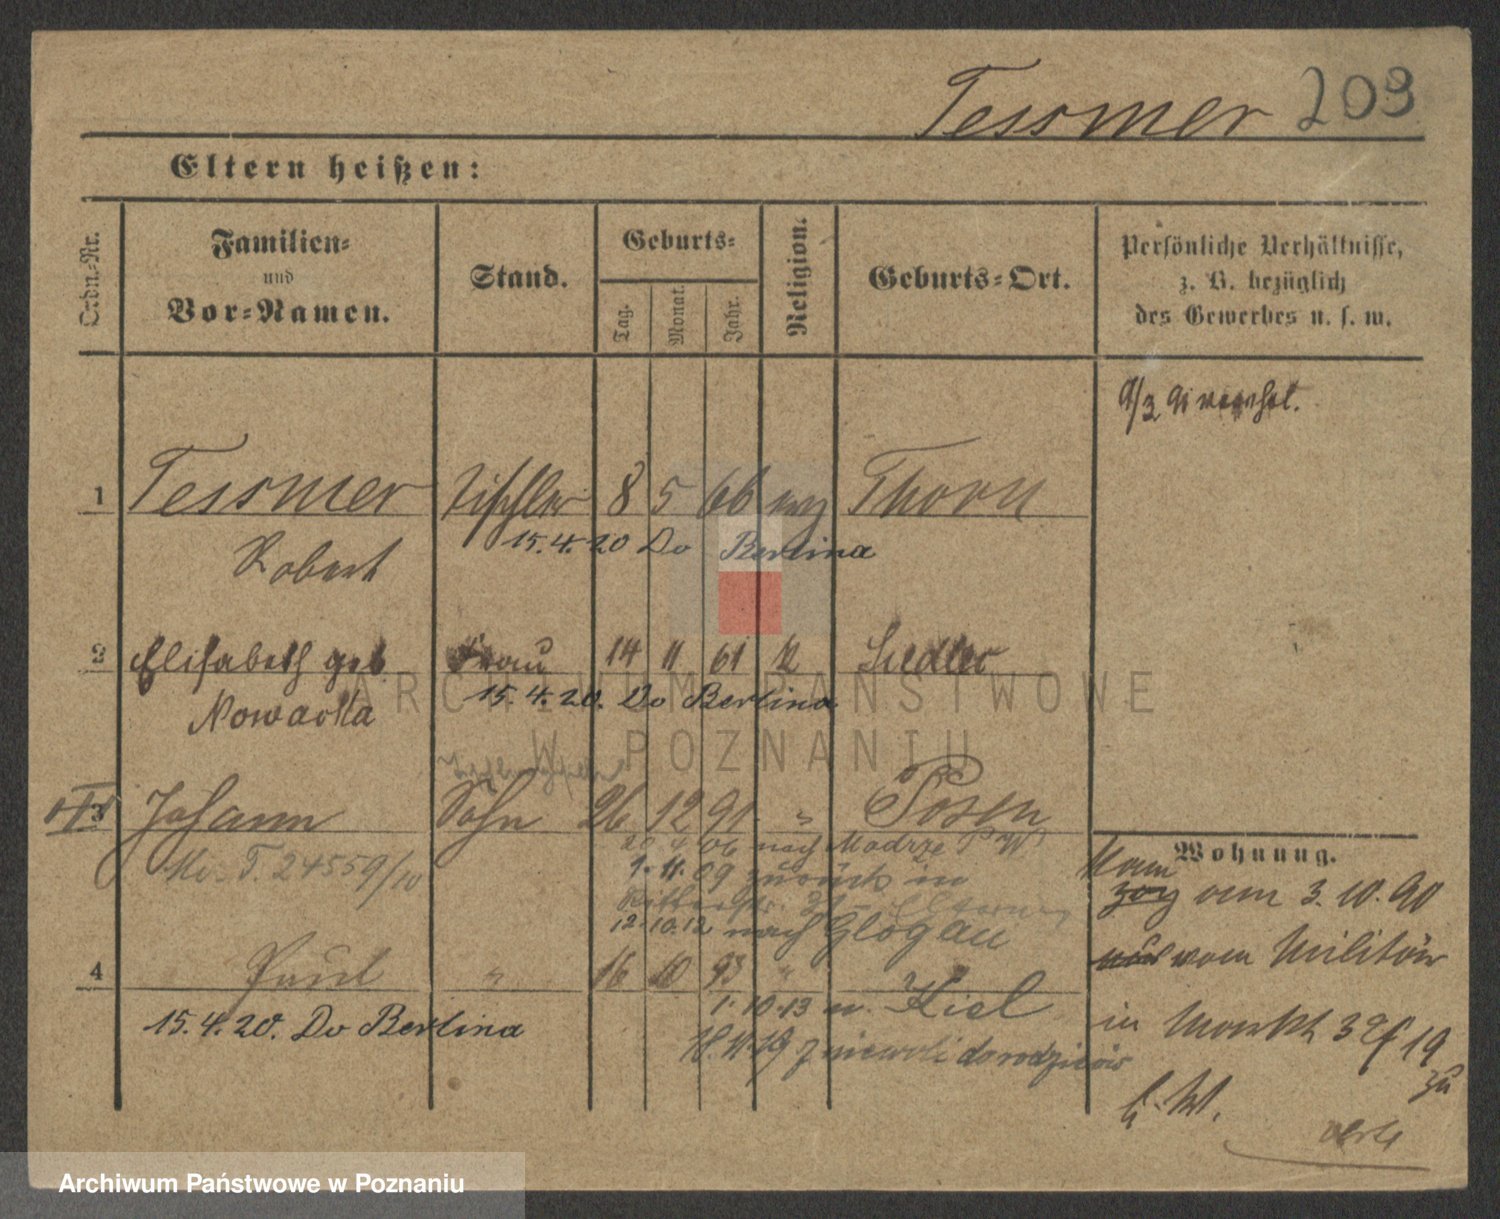 Tessmer 209
Eltern heißen:
Ordn.-Nr.
Familien-
und
Vor-Namen.
Stand.
Geburts-
Tag.
Monat.
Jahr.
Religion.
Geburts-Ort.
Persönliche Verhältnisse,
z. B. bezüglich
des Gewerbes u. s. w.
9/3 91
1 Tessmer Tischler 8 5 66 Thorn
Robert
15.4.20 Do Berlina
2 Elisabeth geb. Frau 14 11 61 Siedler
Nowacka
15.4.20. Do Berlina
3 Johann Sohn 26 12 91 " Posen
20 4 06 nach Modrze P W
T. 24559/10
1.11.09 zurück in
Ritterstr. Eltern
12.10.12 nach Glogau
4 Paul " 16 10 93 "
1.10.13 n. Kiel
15.4.20. Do Berlina
z niewoli do rodziców
Wohnung.
Kam
zog vom 3.10.90
vom Militär
in Markt 19
zu
ARCHIWUM PAŃSTWOWE
W POZNANIU
Archiwum Państwowe w Poznaniu